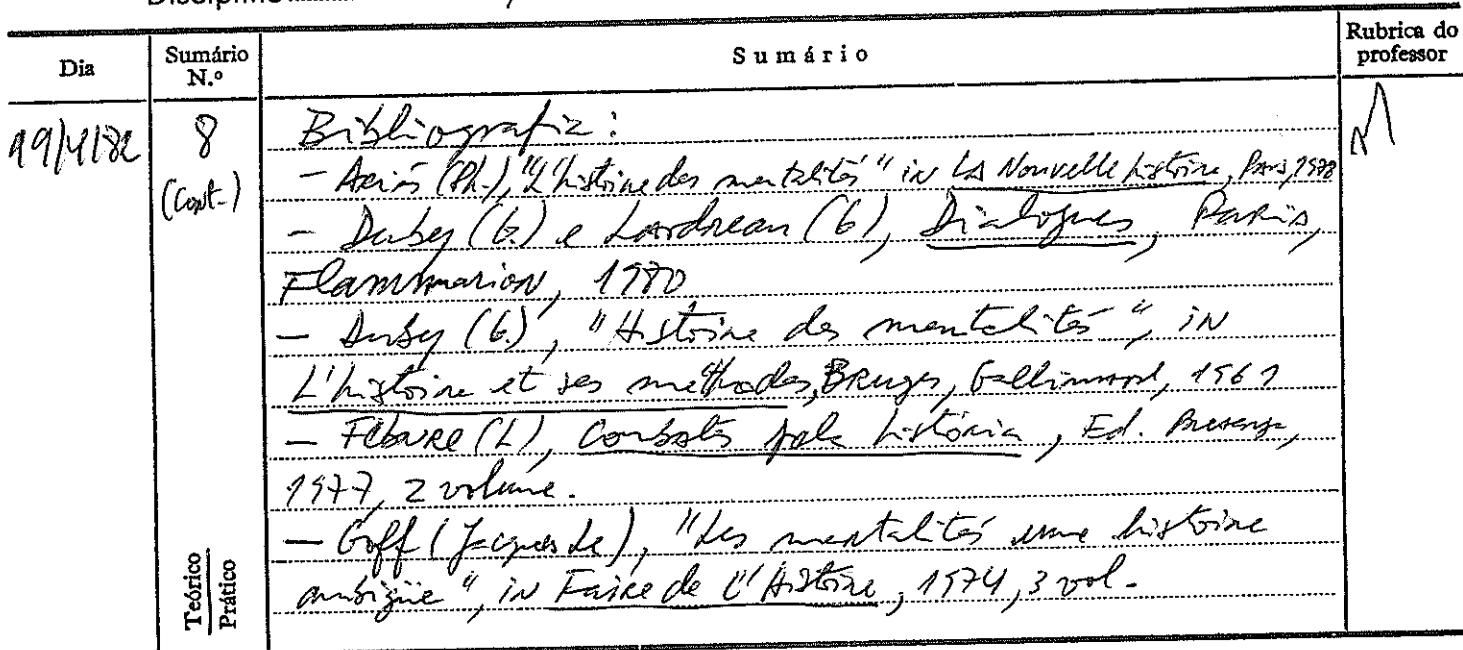 Disciplina
Dia
Sumário N.º
Sumário
Rubrica do professor
19/4/82
8
(Cont.)
Bibliografia:
- Ariés (Ph.), "L'histoire des mentalités" in La Nouvelle histoire, Paris, 1978
- Duby (G.) e Lardreau (G), Dialogues, Paris,
Flammarion, 1980
- Duby (G), "Histoire des mentalités", in
L'histoire et ses méthodes, Bruges, Gallimard, 1961
- Febvre (L), Combates pela história, Ed. Presença,
1977, 2 volume.
- Goff (Jacques Le), "Les mentalités une histoire
ambigüe", in Faire de L'Histoire, 1974, 3 vol.
Teórico
Prático